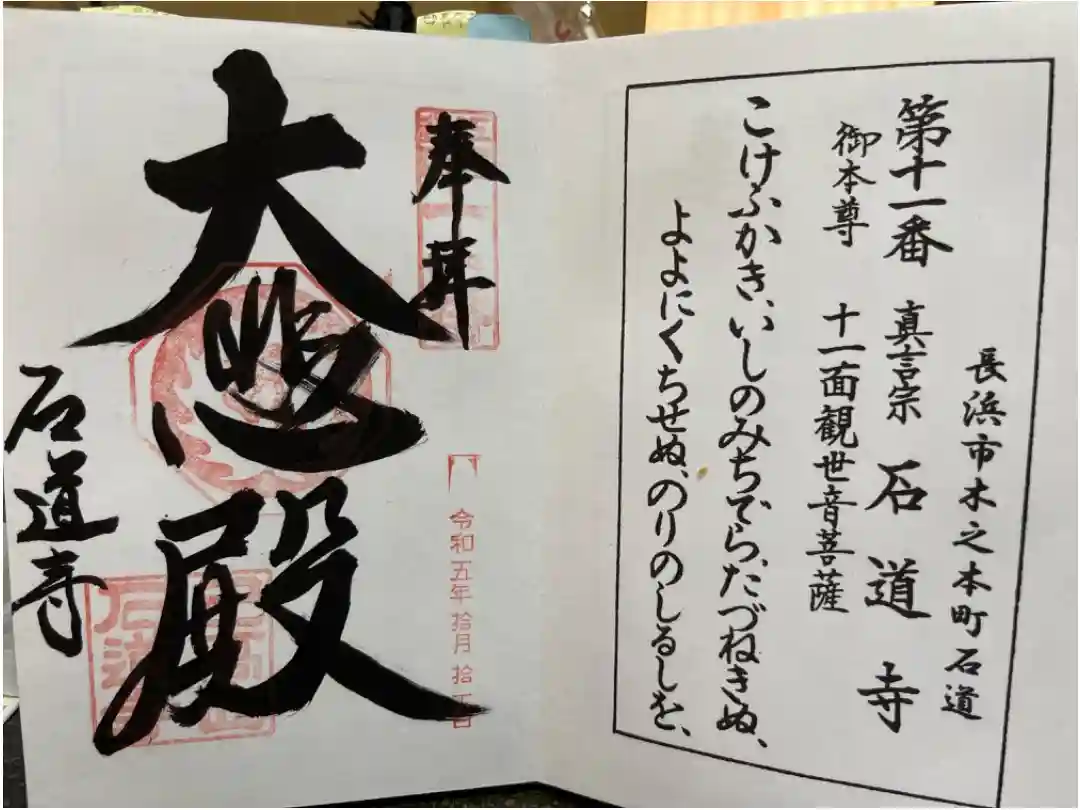 長浜市木之本町石道
第十一番 真言宗 石道寺
御本尊 十一面観世音菩薩
こけふかき、いしのみちでら、たづねきぬ、
よよにくちせぬ、のりのしるしを、
奉拝
令和五年拾月拾五日
大悲殿
石道寺